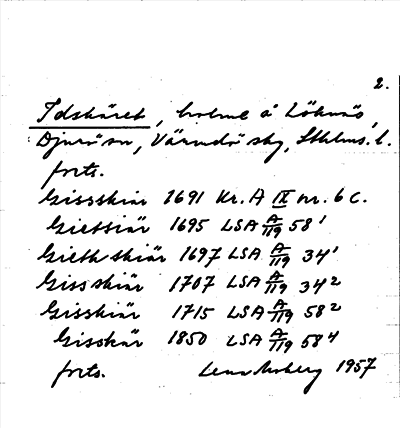 2.
Idskäret, holme å Löknäs,
Djurö sn, Värmdö skg, Sthlms. l.
forts.
Gissskiär 1691 Kr. A IX nr. 6 c.
Gietsiär 1695 LSA A/119 58¹
Gieth skiär 1697 LSA A/119 34¹
Giss skiär 1707 LSA A/119 34²
Gisskiär 1715 LSA A/119 58²
Gisskär 1850 LSA A/119 58⁴
forts. 1957